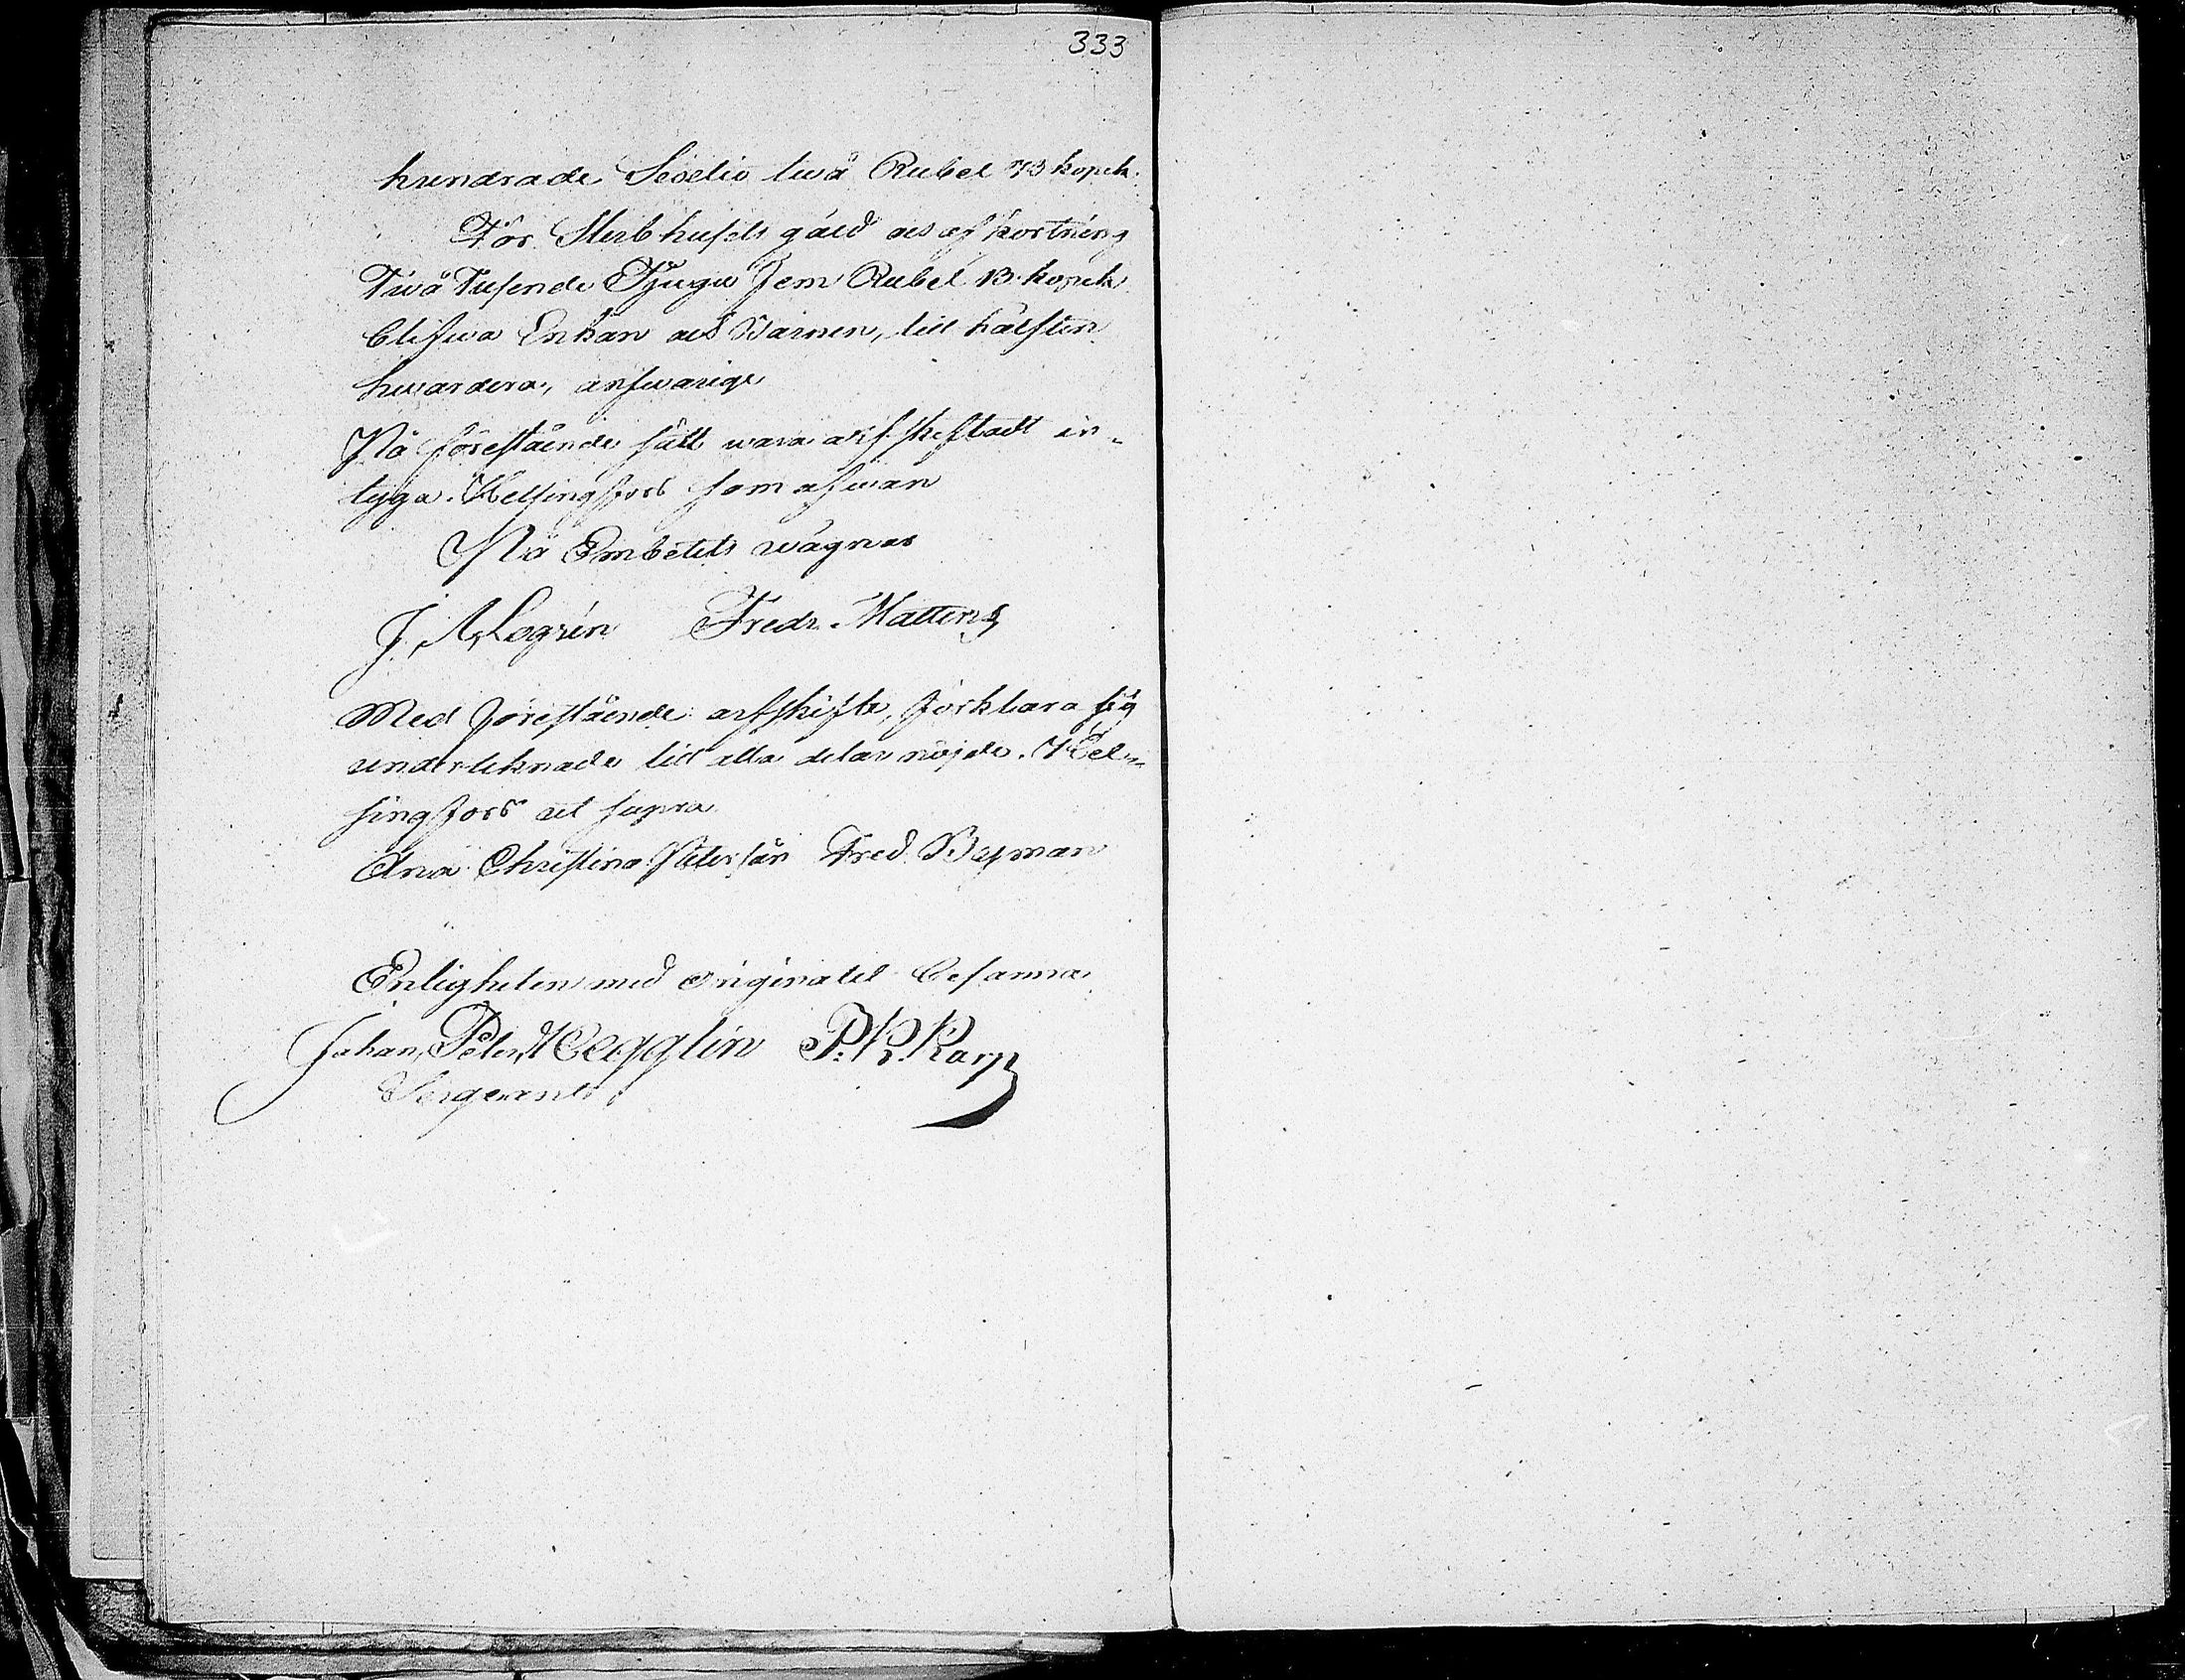 333
hundrade Sextio twå Rubel 73 kopek.
För Sterbhusets gäld och afkortning
Twå Tusende Tjugu Fem Rubel 13. kopek
blifwa Enkan och Barnen, till hälften
hwardera, answarige
På förestående sätt wara arfskiftadt in-
tyga. Helsingfors som ofwan
På Embetets wägnar
J. A. Logrén Fredr. Matten
Med förestående arfskifte, förklara sig
undertecknade till alla delar nöjde. Hel-
singfors ut supra
Anna Christina Petersån Fred. Boman
Enligheten med originalet besanna
Johan Peter Hegglin P. R. Karp
Sergeant